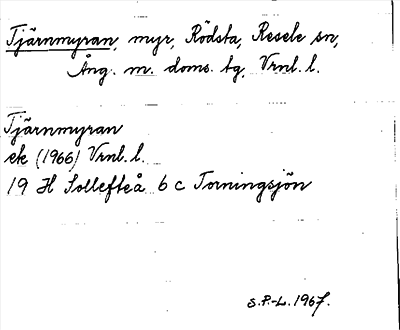 Tjärnmyran, myr, Rödsta, Resele sn,
Ång. m. doms. tg, Vrnl. l.
Tjärnmyran
ek (1966) Vrnl. l.
19 H Sollefteå 6 c Torningsjön
S.P.-L. 1967.